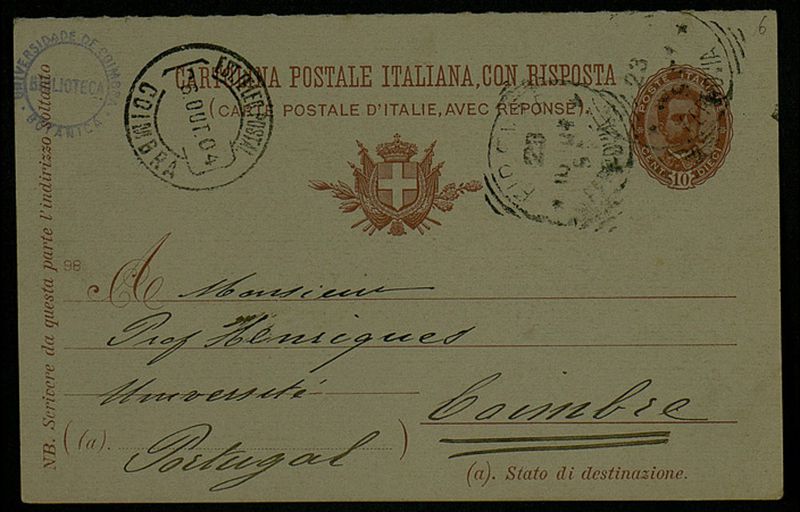 6
UNIVERSIDADE DE COIMBRA
BIBLIOTECA
BOTANICA
COIMBRA
OUT 04
CARTOLINA POSTALE ITALIANA, CON RISPOSTA
(CARTE POSTALE D'ITALIE, AVEC RÉPONSE).
POSTE ITALIANE
CENT. 10 DIECI
23
NB. Scrivere da questa parte l'indirizzo soltanto
98
A Monsieur
Prof Henriques
Université
Coimbre
(a).
Portugal
(a). Stato di destinazione.